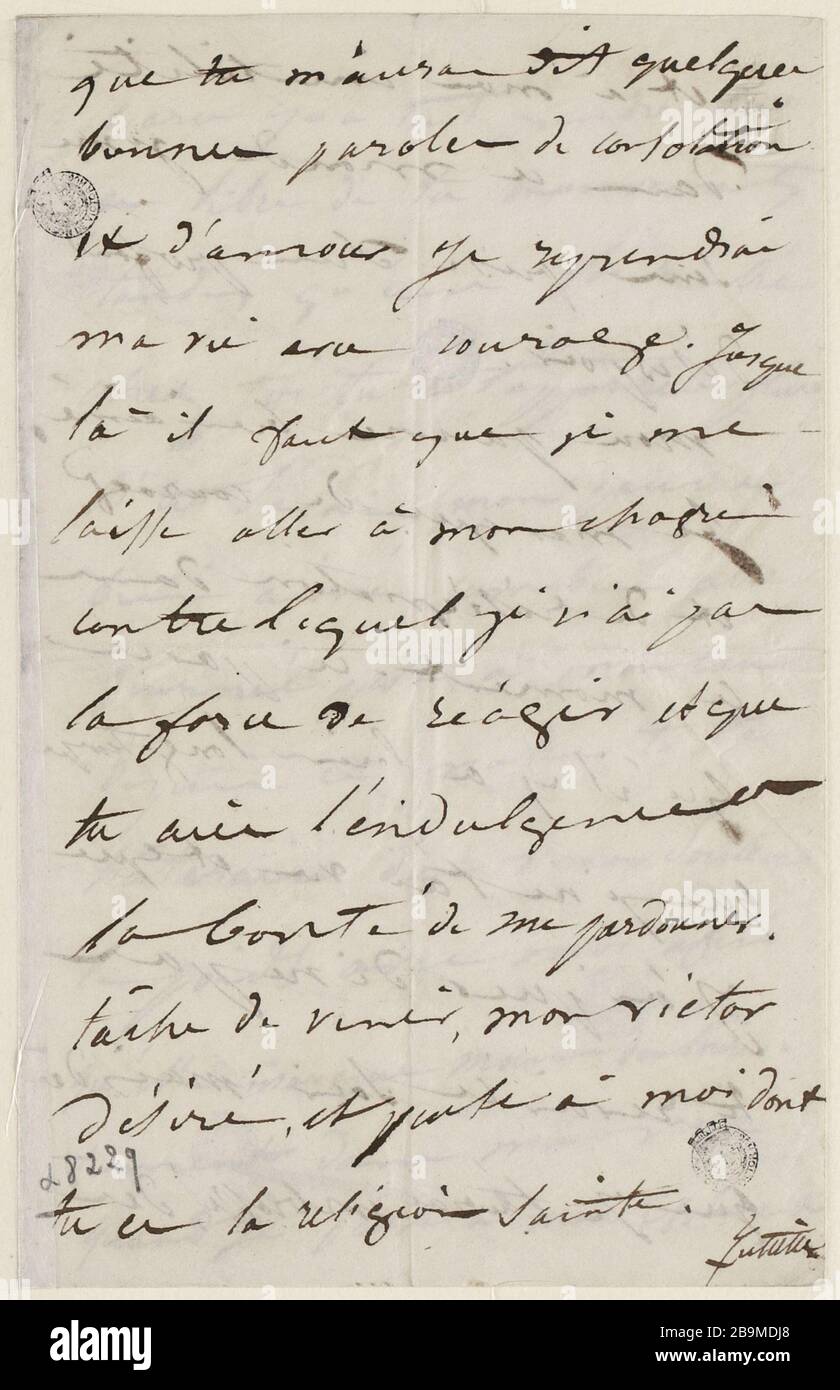 que tu m'auras dit quelques
bonnes paroles de consolation
et d'amour je reprendrai
ma vie avec courage. Jusque
là il faut que je me
laisse aller à mon chagrin
contre lequel je n'ai pas
la force de réagir et que
tu aies l'indulgence et
la bonté de me pardonner.
tâche de venir, mon victor
désiré, et pense à moi dont
tu es la religion sainte.
Juliette
28229
alamy
Image ID: 2B9MDJ8
www.alamy.com